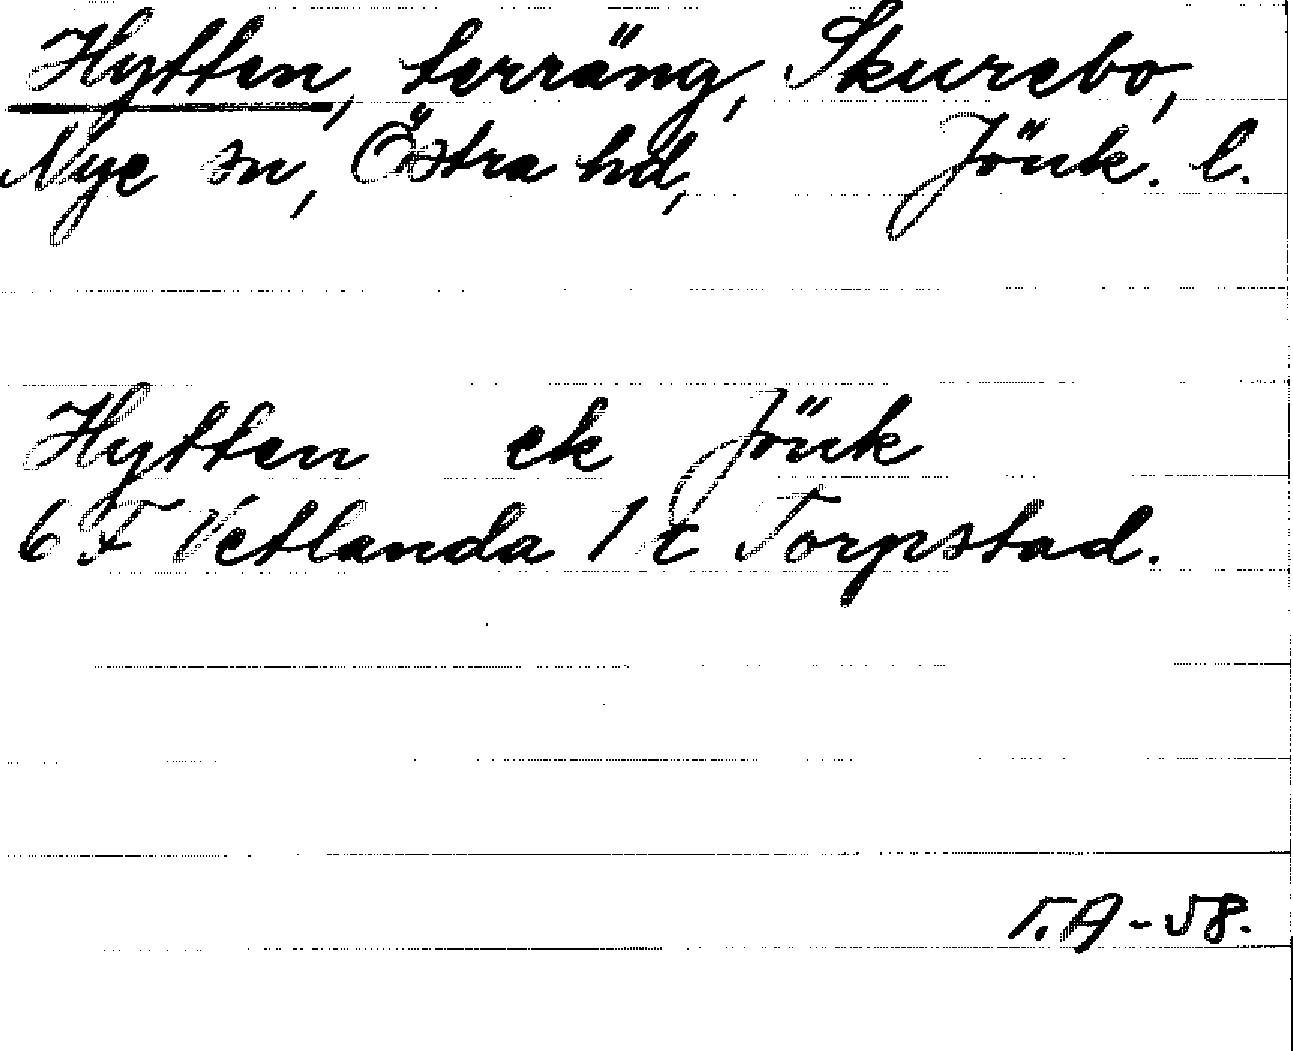 Hytten, terräng, Skurebo,
Nye sn, Östra hd, Jönk. l.
Hytten ek Jönk
6 F Vetlanda 1 c Torpstad.
T.A-58.